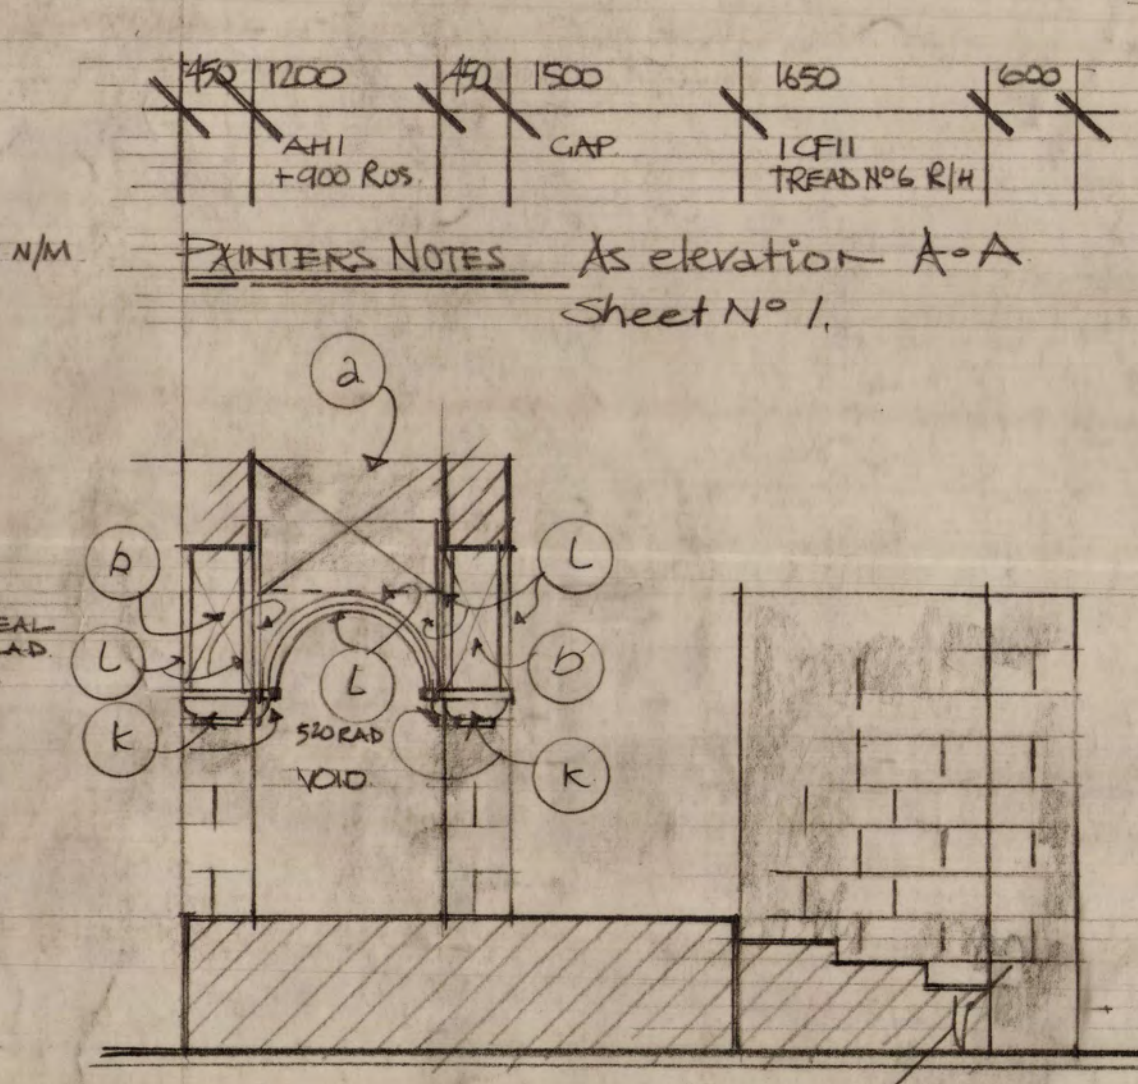 450 1200 450 1500 1650 600
AH1
+900 ROS.
GAP
1CF11
TREAD Nº6 R/H
N/M
PAINTERS NOTES As elevation A-A
Sheet Nº 1.
a
b
L
L
L
b
K
520 RAD
VOID
K